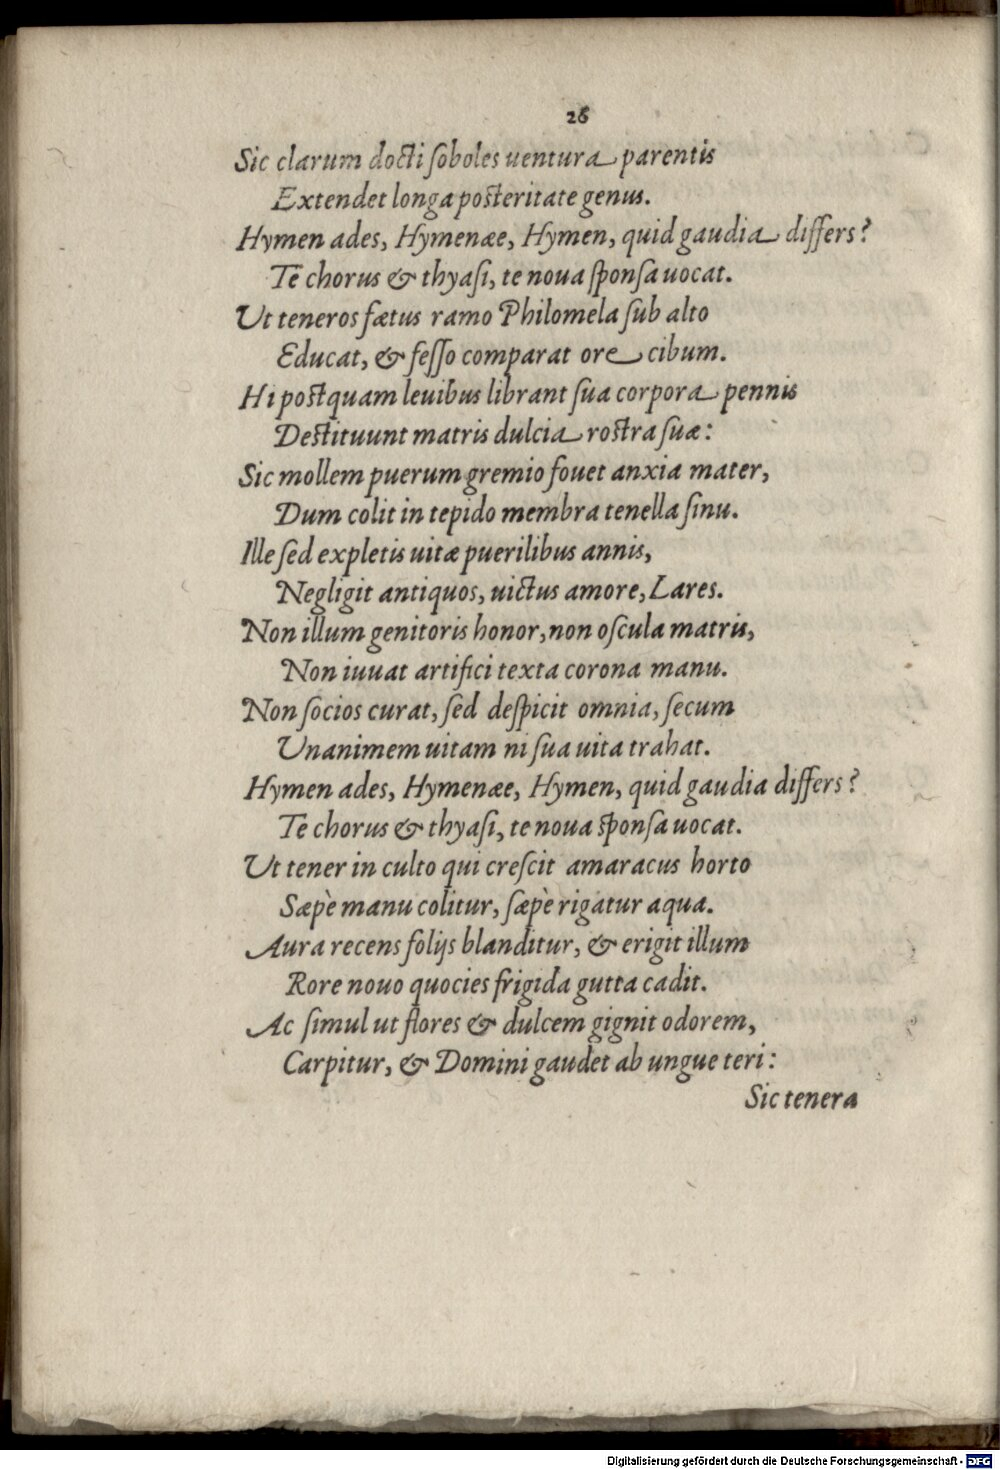 26
Sic clarum docti ſoboles uentura parentis
Extendet longa poſteritate genus.
Hymen ades, Hymenæe, Hymen, quid gaudia differs?
Te chorus & thyaſi, te noua ſponſa uocat.
Ut teneros fætus ramo Philomela ſub alto
Educat, & feſſo comparat ore cibum.
Hi poſtquam leuibus librant ſua corpora pennis
Deſtituunt matris dulcia roſtra ſuæ:
Sic mollem puerum gremio fouet anxia mater,
Dum colit in tepido membra tenella ſinu.
Ille ſed expletis uitæ puerilibus annis,
Negligit antiquos, uictus amore, Lares.
Non illum genitoris honor, non oſcula matris,
Non iuuat artifici texta corona manu.
Non ſocios curat, ſed deſpicit omnia, ſecum
Unanimem uitam ni ſua uita trahat.
Hymen ades, Hymenæe, Hymen, quid gaudia differs?
Te chorus & thyaſi, te noua ſponſa uocat.
Ut tener in culto qui creſcit amaracus horto
Sæpè manu colitur, ſæpè rigatur aqua.
Aura recens folijs blanditur, & erigit illum
Rore nouo quocies frigida gutta cadit.
Ac ſimul ut flores & dulcem gignit odorem,
Carpitur, & Domini gaudet ab ungue teri:
Sic tenera
Digitalisierung gefördert durch die Deutsche Forschungsgemeinschaft - DFG